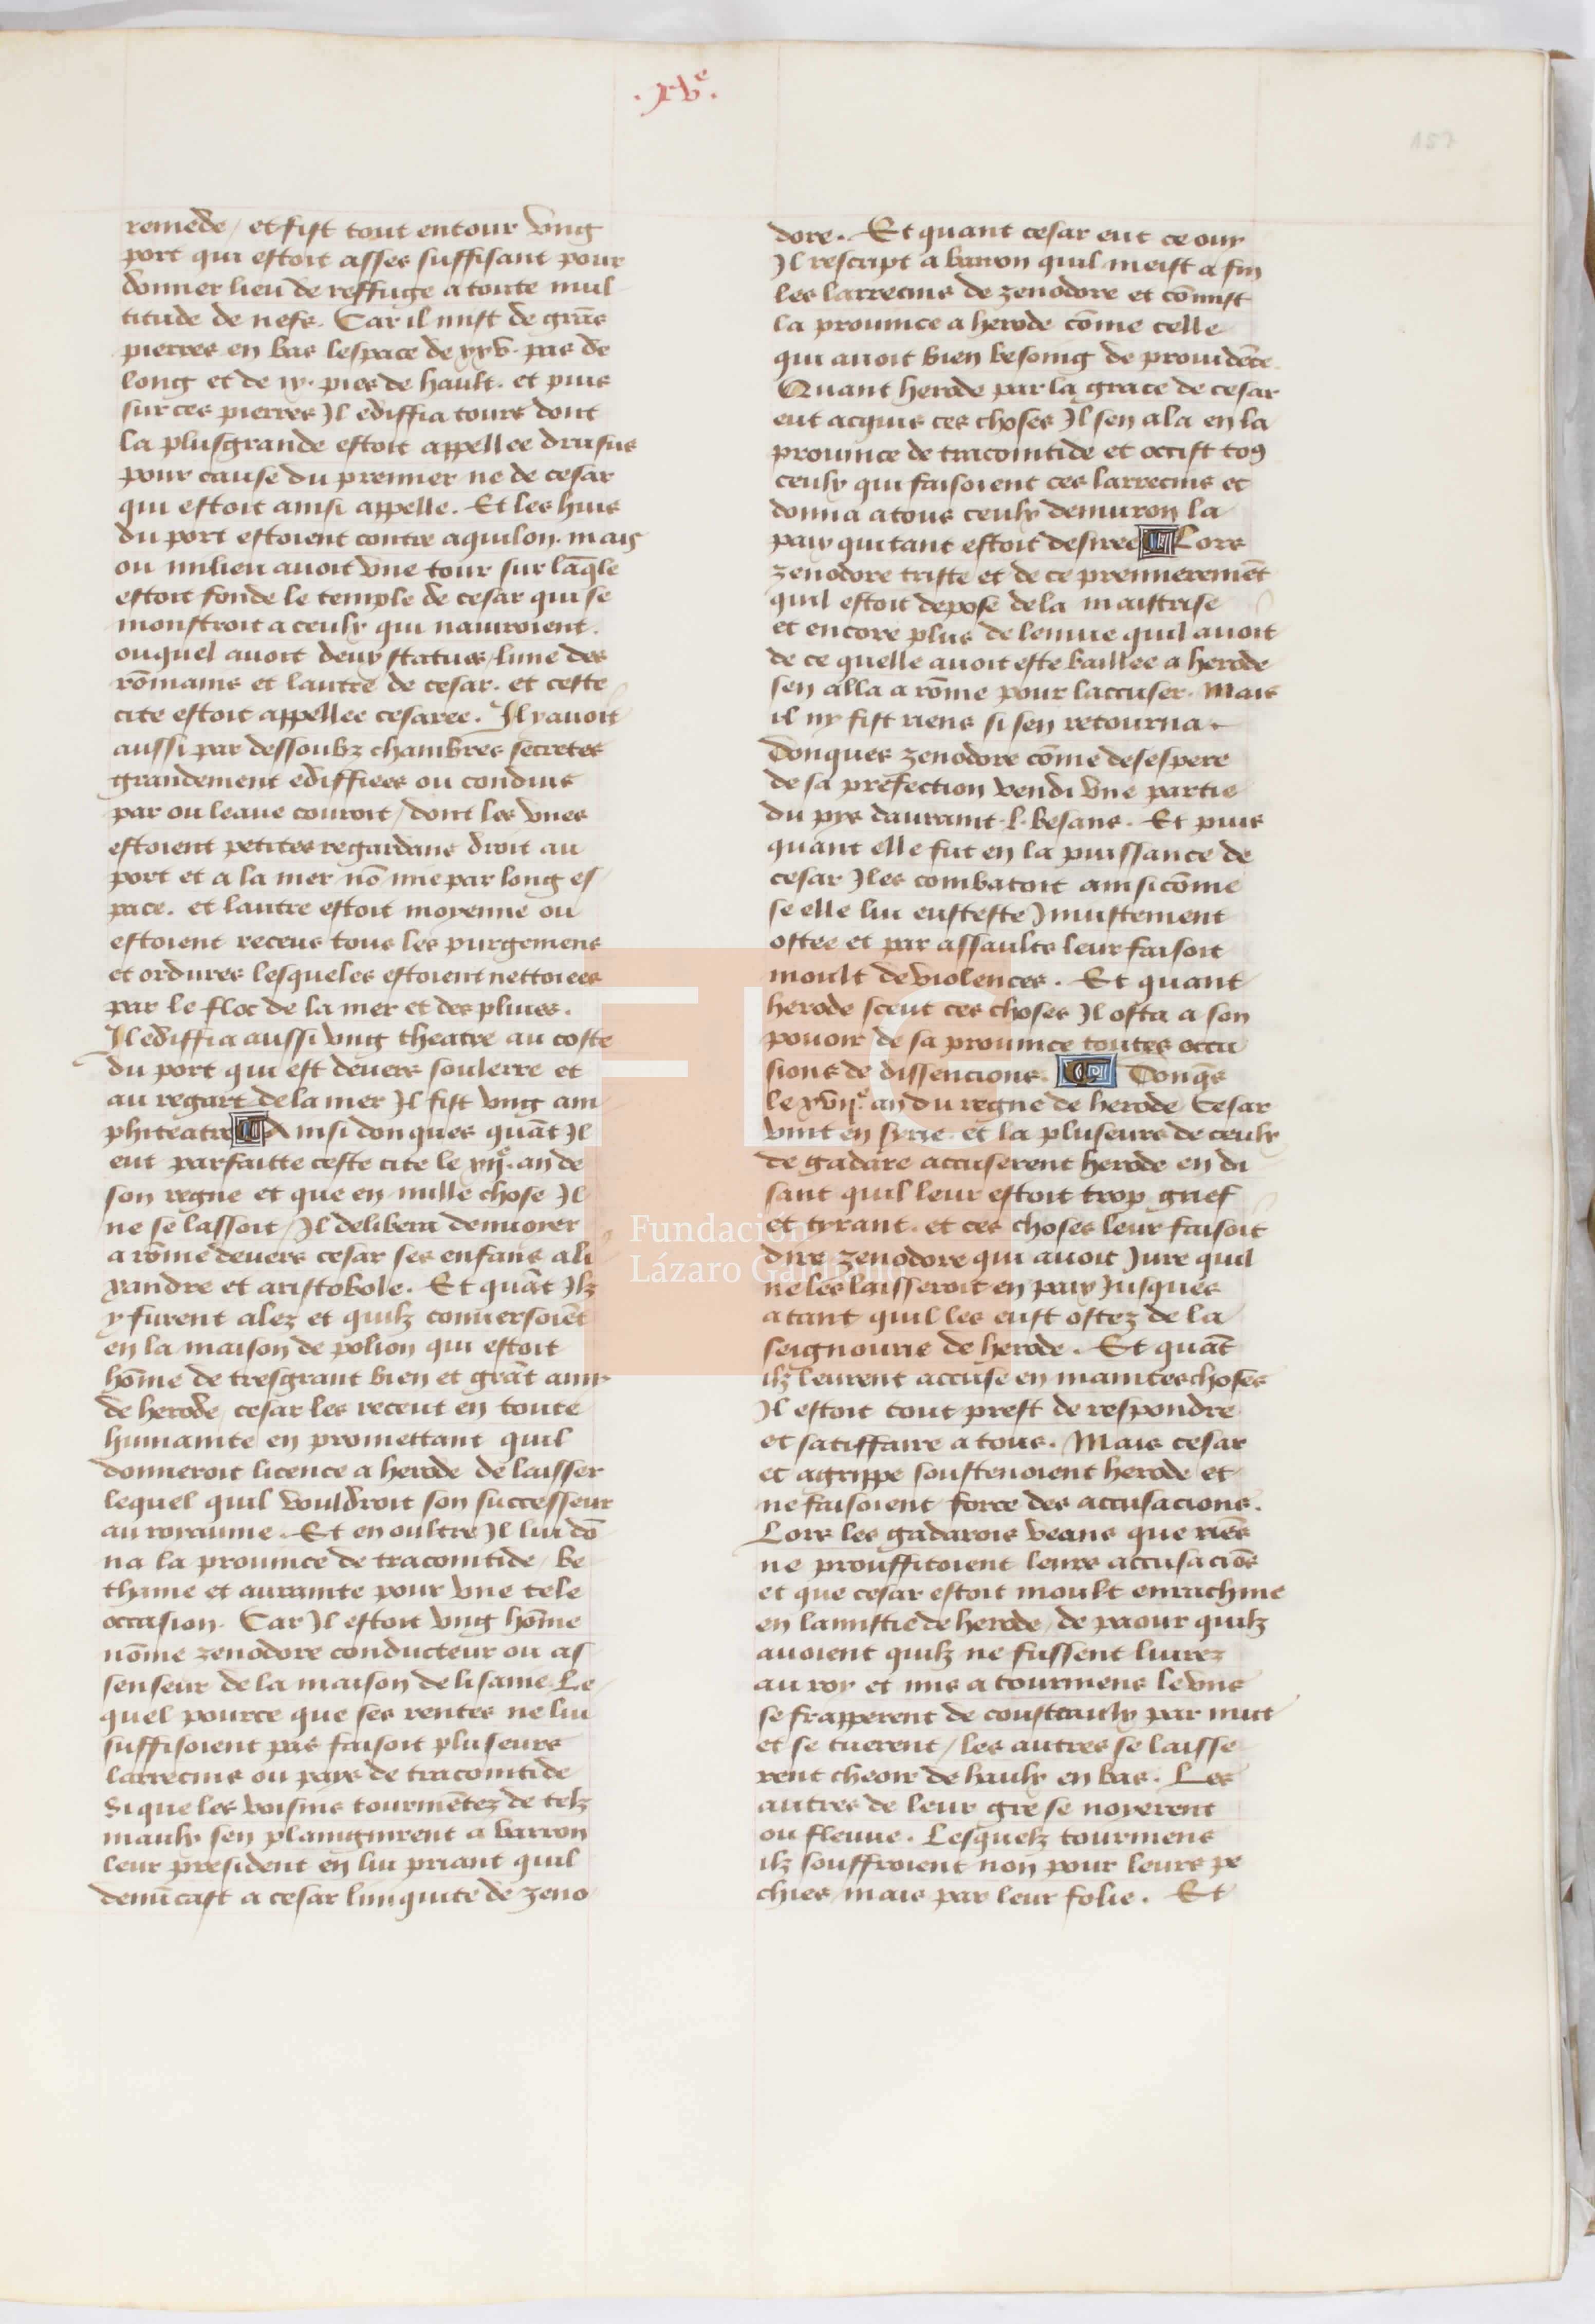 .xv.e
157
remede / et fist tout entour vng
port qui estoit asses suffisant pour
donner lieu de reffuge a toute mul
titude de nefs. Car il mist de grãs
pierres en bas lespace de xxv. pas de
long et de ix. pies de hault. et puis
sur ces pierres Il ediffia tours dont
la plusgrande estoit appellee drusus
pour cause du premier ne de cesar
qui estoit ainsi appelle. Et les huis
du port estoient contre aquilon. mais
ou milieu auoit vne tour sur laq̃le
estoit fonde le temple de cesar qui se
monstroit a ceulx qui nauiroient.
ouquel auoit deux statues / lune des
rõmains et lautre de cesar. et ceste
cite estoit appellee cesaree. Il y auoit
aussi par dessoubz chambres secretes
grandement ediffiees ou conduis
par ou leaue couroit / dont les vnes
estoient petites regardans droit au
port et a la mer nõ mie par long es
pace. et lautre estoit moyenne ou
estoient receus tous les purgemens
et ordures lesqueles estoient nettoiees
par le floc de la mer et des pluies.
Il ediffia aussi vng theatre au coste
du port qui est deuers soulerre et
au regart de la mer Il fist vng am
phiteatre Ainsi donques quãt Il
eut parfaitte ceste cite le xije. an de
son regne et que en nulle chose Il
ne se lassoit / Il delibera denuoier
a rõme deuers cesar ses enfans ali
xandre et aristobole. Et quãt Ilz
y furent alez et quilz conuersoiẽt
en la maison de polion qui estoit
hõme de tresgrant bien et grãt amy
de herode / cesar les receut en toute
humanite en promettant quil
donneroit licence a herode de laisser
lequel quil vouldroit son successeur
au royaume. Et en oultre Il lui dõ
na la prouince de traconitide / be
thanie et auranite pour vne tele
occasion. Car Il estoit vng hõme
nõme zenodore conducteur ou as
senseur de la maison de lisanie. Le
quel pource que ses rentes ne lui
suffisoient pas faisoit pluseurs
larrecins ou pays de traconitide
Si que les voisins tourmẽtez de telz
maulx sen plaingnirent a varron
leur president en lui priant quil
denũcast a cesar liniquite de zeno
dore. Et quant cesar eut ce ouy
Il rescript a varron quil meist a fin
les larrecins de zenodore et cõmist
la prouince a herode cõme celle
qui auoit bien besoing de prouidẽce.
Quant herode par la grace de cesar
eut acquis ces choses Il sen ala en la
prouince de traconitide et occist to9
ceulx qui faisoient ces larrecins et
donna a tous ceulx denuiron la
paix qui tant estoit desiree Lors
zenodore triste et de ce premieremẽt
quil estoit depose de la maistrise
et encore plus de lenuie quil auoit
de ce quelle auoit este baillee a herode
sen alla a rõme pour laccuser. Mais
il ny fist riens si sen retourna.
Donques zenodore cõme desespere
de sa prefection vendi vne partie
du pys dauranit .l. besans. Et puis
quant elle fut en la puissance de
cesar Iles combatoit ainsi cõme
se elle lui eust este Iniustement
ostee et par assaults leur faisoit
moult de violences. Et quant
herode sceut ces choses Il osta a son
pouoir de sa prouince toutes occa
sions de dissencions. Donq̃s
le xvije. an du regne de herode Cesar
vint en syrie. et la pluseurs de ceulx
de gadare accuserent herode en di
sant quil leur estoit trop grief
et tyrant. et ces choses leur faisoit
dire zenodore qui auoit Jure quil
ne les laisseroit en paix Jusques
a tant quil les eust ostez de la
seignourie de herode. Et quãt
ilz leurent accuse en maintes choses
Il estoit tout prest de respondre
et satiffaire a tous. Mais cesar
et agrippe soustenoient herode et
ne faisoient force des accusacions.
Lors les gadarois veans que riẽs
ne prouffitoient leurs accusaciõs
et que cesar estoit moult enrachine
en lamistie de herode / de paour quilz
auoient quilz ne fussent liurez
au roy et mis a tourmens les vns
se frapperent de cousteaulx par nuit
et se tuerent / les autres se laisse
rent cheoir de haulx en bas. Les
autres de leur gre se noyerent
ou fleuue. Lesquelz tourmens
ilz souffroient non pour leurs pe
chies / mais par leur folie. Et
Fundación
Lázaro Galdiano